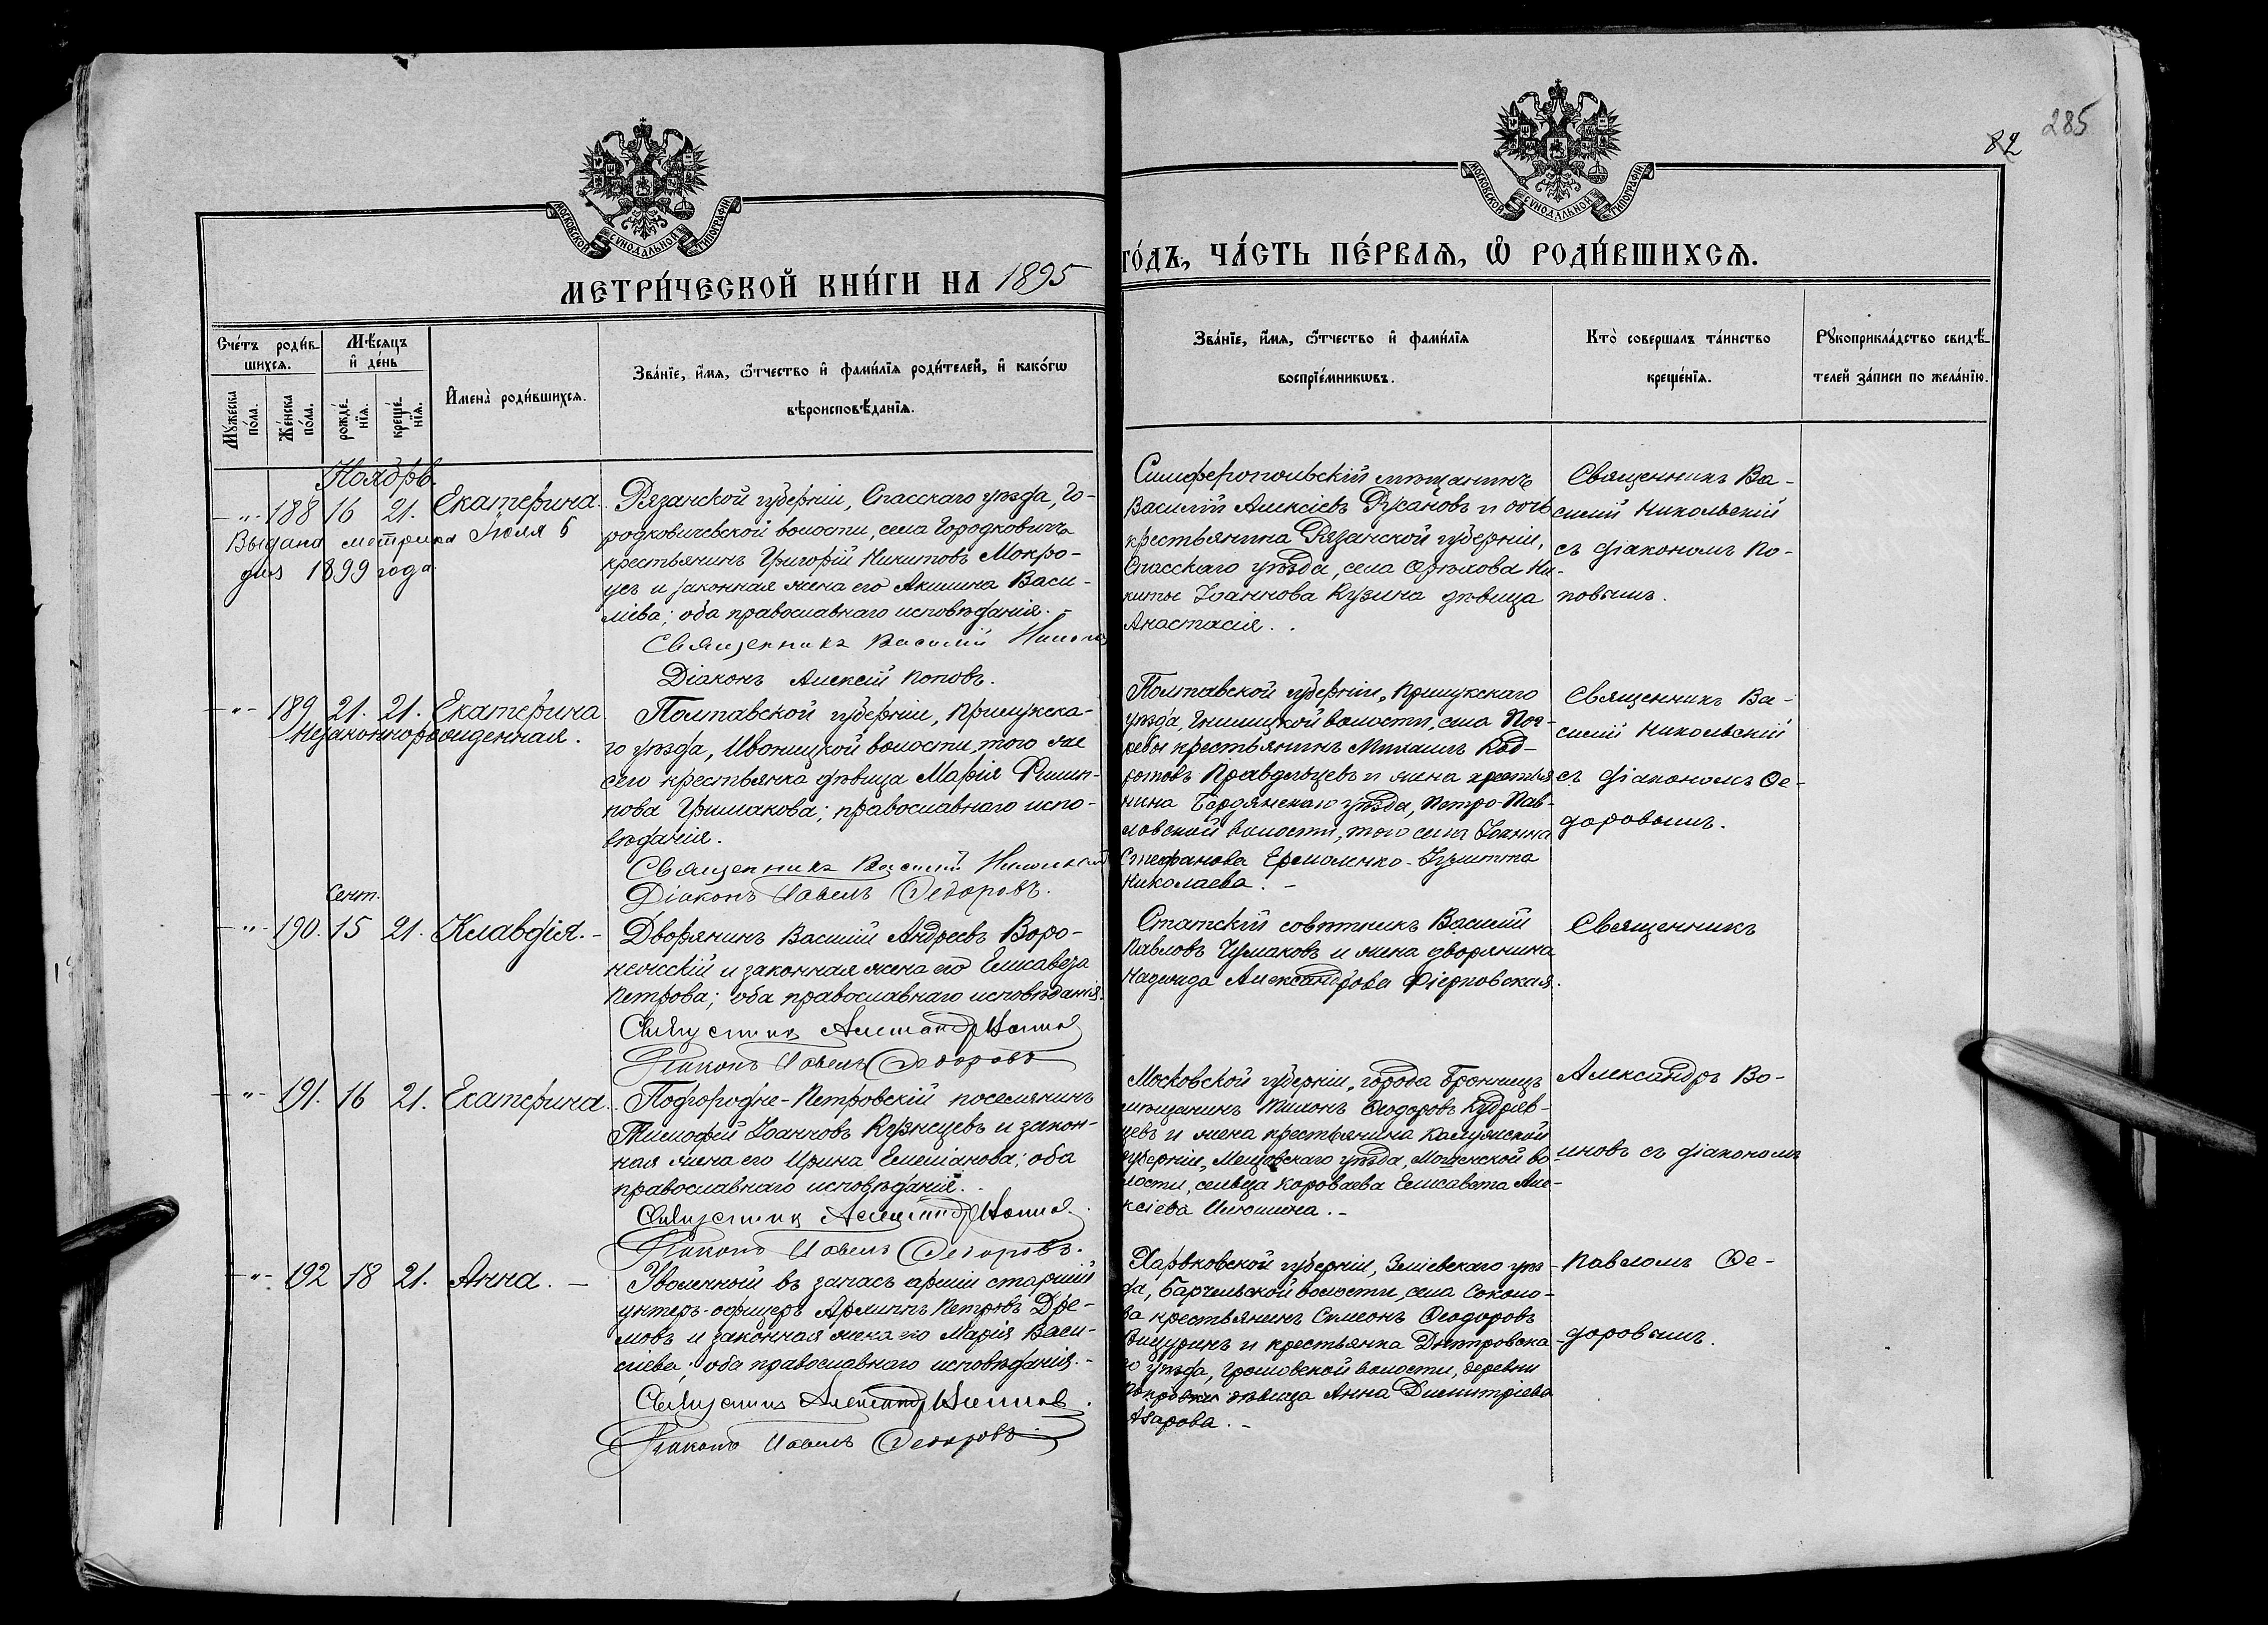 285
82
МОСКОВСКОЙ СѴНОДАЛЬНОЙ ТИПОГРАФІИ
МОСКОВСКОЙ СѴНОДАЛЬНОЙ ТИПОГРАФІИ
МЕТРИ́ЧЕСКОЙ КНИ́ГИ НА 1895
ГО́ДЪ, ЧА́СТЬ ПЕ́РВАѦ, Ѽ РОДИ́ВШИХСѦ.
Сче́тъ роди́в-
шихсѧ.
Мꙋ́жеска
по́ла.
Же́нска
по́ла.
Мѣ́сяцъ
и҆ де́нь
рожде́-
нїѧ.
креще́-
нїѧ.
И҆мена̀ роди́вшихсѧ.
Зва́нїе, и҆́мѧ, ѻ҆́тчество и҆ фами́лїѧ роди́телей, и҆ како́гѡ
вѣроисповѣ́данїѧ.
Зва́нїе, и҆́мѧ, ѻ҆́тчество и҆ фами́лїѧ
воспрїе́мникѡвъ.
Кто̀ совершалъ та́инство
креще́нїѧ.
Рꙋкоприкла́дство свидѣ́-
телей за́писи по жела́нїю.
Ноябрь.
-"- 188 16 21. Екатерина.
Выдана метрика Іюля 6
дня 1899 года
Рязанской губерніи, Спасскаго уѣзда, Го-
родковичевской волости, села Городковичъ
крестьянинъ Григорій Никитовъ Мокро-
усъ и законная жена его Акилина Васи-
ліева; оба православнаго исповѣданія. -
Священникъ Василій
Діаконъ Алексій Поповъ.
Симферопольскій мѣщанинъ
Василій Алексіевъ Русановъ и дочь
крестьянина Рязанской губерніи,
Спасскаго уѣзда, села Орѣхова Ни-
киты Іоаннова Кузина дѣвица
Анастасія. .
Священникъ Ва-
силій Никольскій
съ діакономъ По-
повымъ.
-"- 189 21. 21. Екатерина
Незаконнорожденная.
Полтавской губерніи, Прилукска-
го уѣзда, Иваницкой волости, того же
села крестьянка дѣвица Марія Филип-
пова Гримакова; православнаго испо-
вѣданія.
Священникъ Василій Никольскій
Діаконъ Павелъ Ѳедоровъ.
Полтавской губерніи, Прилукскаго
уѣзда, Гнилицкой волости, села Пог-
ребы крестьянинъ Михаилъ Код-
ратовъ Правдивцевъ и жена крестья-
нина Бердянскаго уѣзда, Петро-Пав-
ловской волости, того села Іоанна
Стефанова Ермоленко - Іулитта
Николаева. -
Священникъ Ва-
силій Никольскій
съ діакономъ Ѳе-
доровымъ.
Сент.
-"- 190. 15 21. Клавдія. -
Дворянинъ Василій Андреевъ Воро-
нежскій и законная жена его Елисавета
Петрова; оба православнаго исповѣданія.
Священникъ Александръ
Діаконъ Павелъ Ѳедоровъ
Статскій совѣтникъ Василій
Павловъ Чумаковъ и жена дворянина
Надежда Александрова Фіерковская.
Священникъ
-"- 191. 16 21. Екатерина.
Подгородне-Петровскій поселянинъ
Тимофей Іоанновъ Кузнецевъ и закон-
ная жена его Ирина Емеліанова; оба
православнаго исповѣданія.
Священникъ Александръ
Діаконъ Павелъ Ѳедоровъ.
Московской губерніи, города Бронницъ
мѣщанинъ Тихонъ Ѳеодоровъ Кудряв-
цевъ и жена крестьянина Калужской
губерніи, Мещовскаго уѣзда, во-
лости, сельца Короваева Елисавета Але-
ксіева Илюшина. -
Александръ Во-
иновъ съ діакономъ
-"- 192 18 21. Анна. -
Уволенный въ запасъ арміи старшій
унтеръ-офицеръ Петровъ Дре-
мовъ и законная жена его Марія Васи-
ліева; оба православнаго исповѣданія. -
Священникъ Александръ
Діаконъ Павелъ Ѳедоровъ
Харьковской губерніи, Зміевскаго уѣз-
да, волости, села Соколо-
ва крестьянинъ Симеонъ Ѳеодоровъ
и крестьянка Дмитровска-
го уѣзда, волости, деревни
дѣвица Анна Димитріева
Азарова. -
Павломъ Ѳе-
доровымъ.